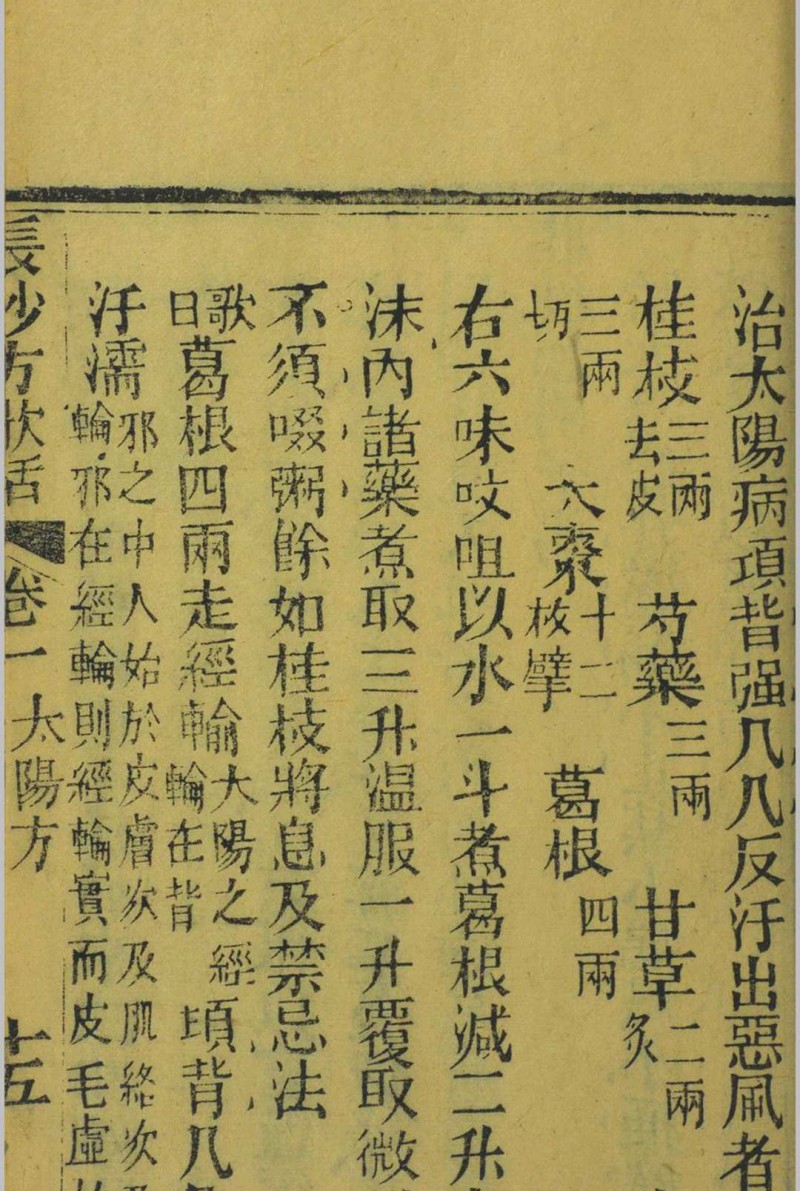 治太陽病項背强几几反汗出惡風者
桂枝三兩去皮 芍藥三兩 甘草二兩炙
三兩切 大棗十二枚擘 葛根四兩
右六味㕮咀以水一斗煮葛根減二升
沫內諸藥煮取三升溫服一升覆取微
不須啜粥餘如桂枝將息及禁忌法
歌曰葛根四兩走經輸大陽之經輪在背項背几
汗濡邪之中人始於皮膚次及肌絡次輪邪在經輪則經輪實而皮毛虛
長沙方歌括 卷一 太陽方 十五